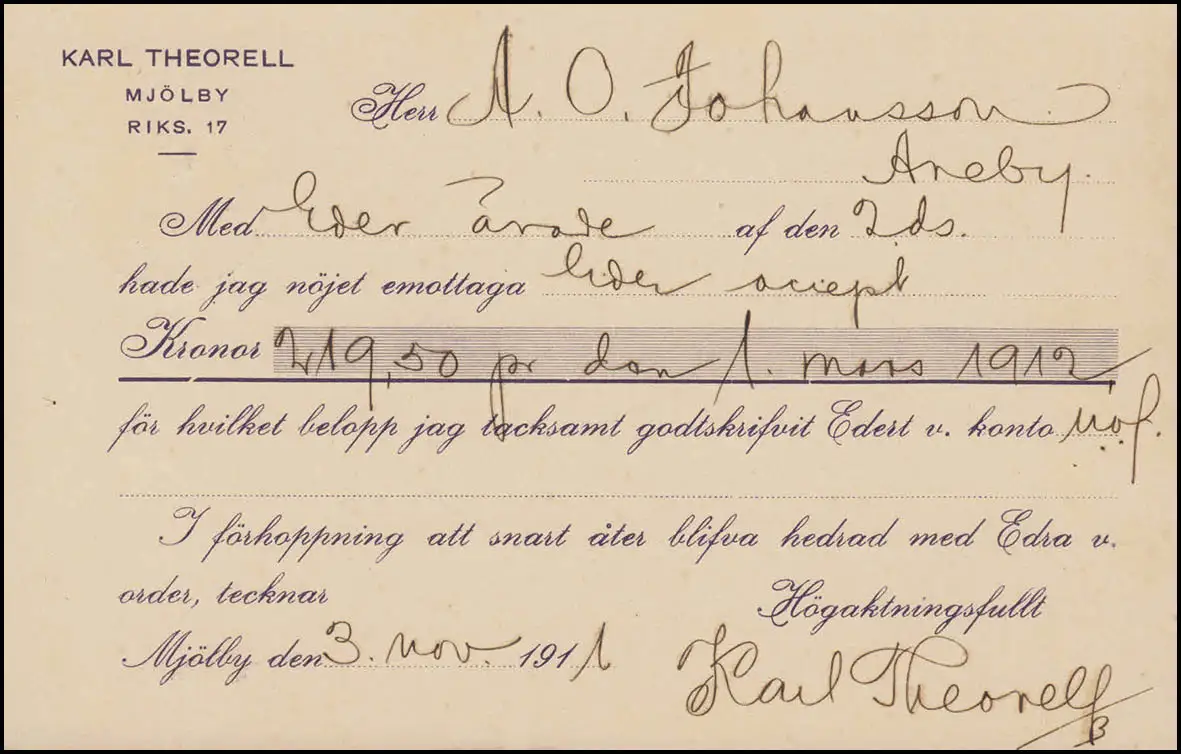 KARL THEORELL
MJÖLBY
RIKS. 17
Herr A. O. Johansson
Aneby.
Med Eder ärade af den 2 ds.
hade jag nöjet emottaga Eder accept
Kronor 219,50 pr den 1. mars 1912
för hvilket belopp jag tacksamt godtskrifvit Edert v. konto
I förhoppning att snart åter blifva hedrad med Edra v.
order, tecknar
Högaktningsfullt
Mjölby den 3. nov. 1911
Karl Theorell